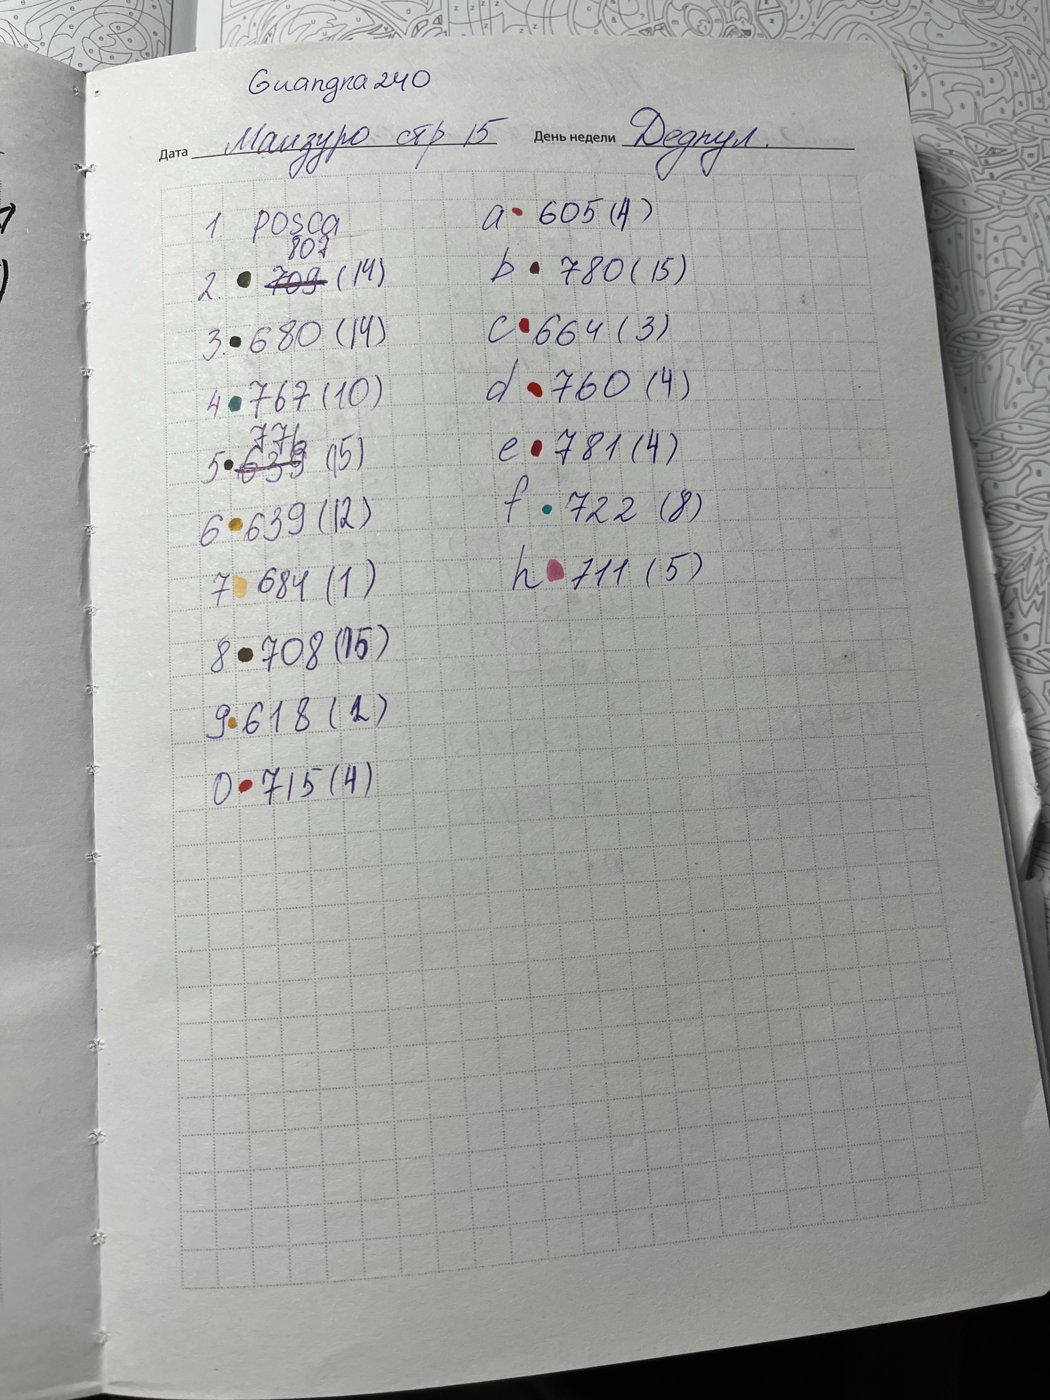 Guangna 240
Дата Манзуро стр 15 День недели Дедпул.
1 POSCA
807
2. 709 (14)
3. 680 (14)
4 767 (10)
776
5 639 (15)
6 639 (12)
7 684 (1)
8 708 (15)
9 618 (1)
0 715 (4)
a 605 (4)
b 780 (15)
c 664 (3)
d 760 (4)
e 781 (4)
f 722 (8)
h 711 (5)